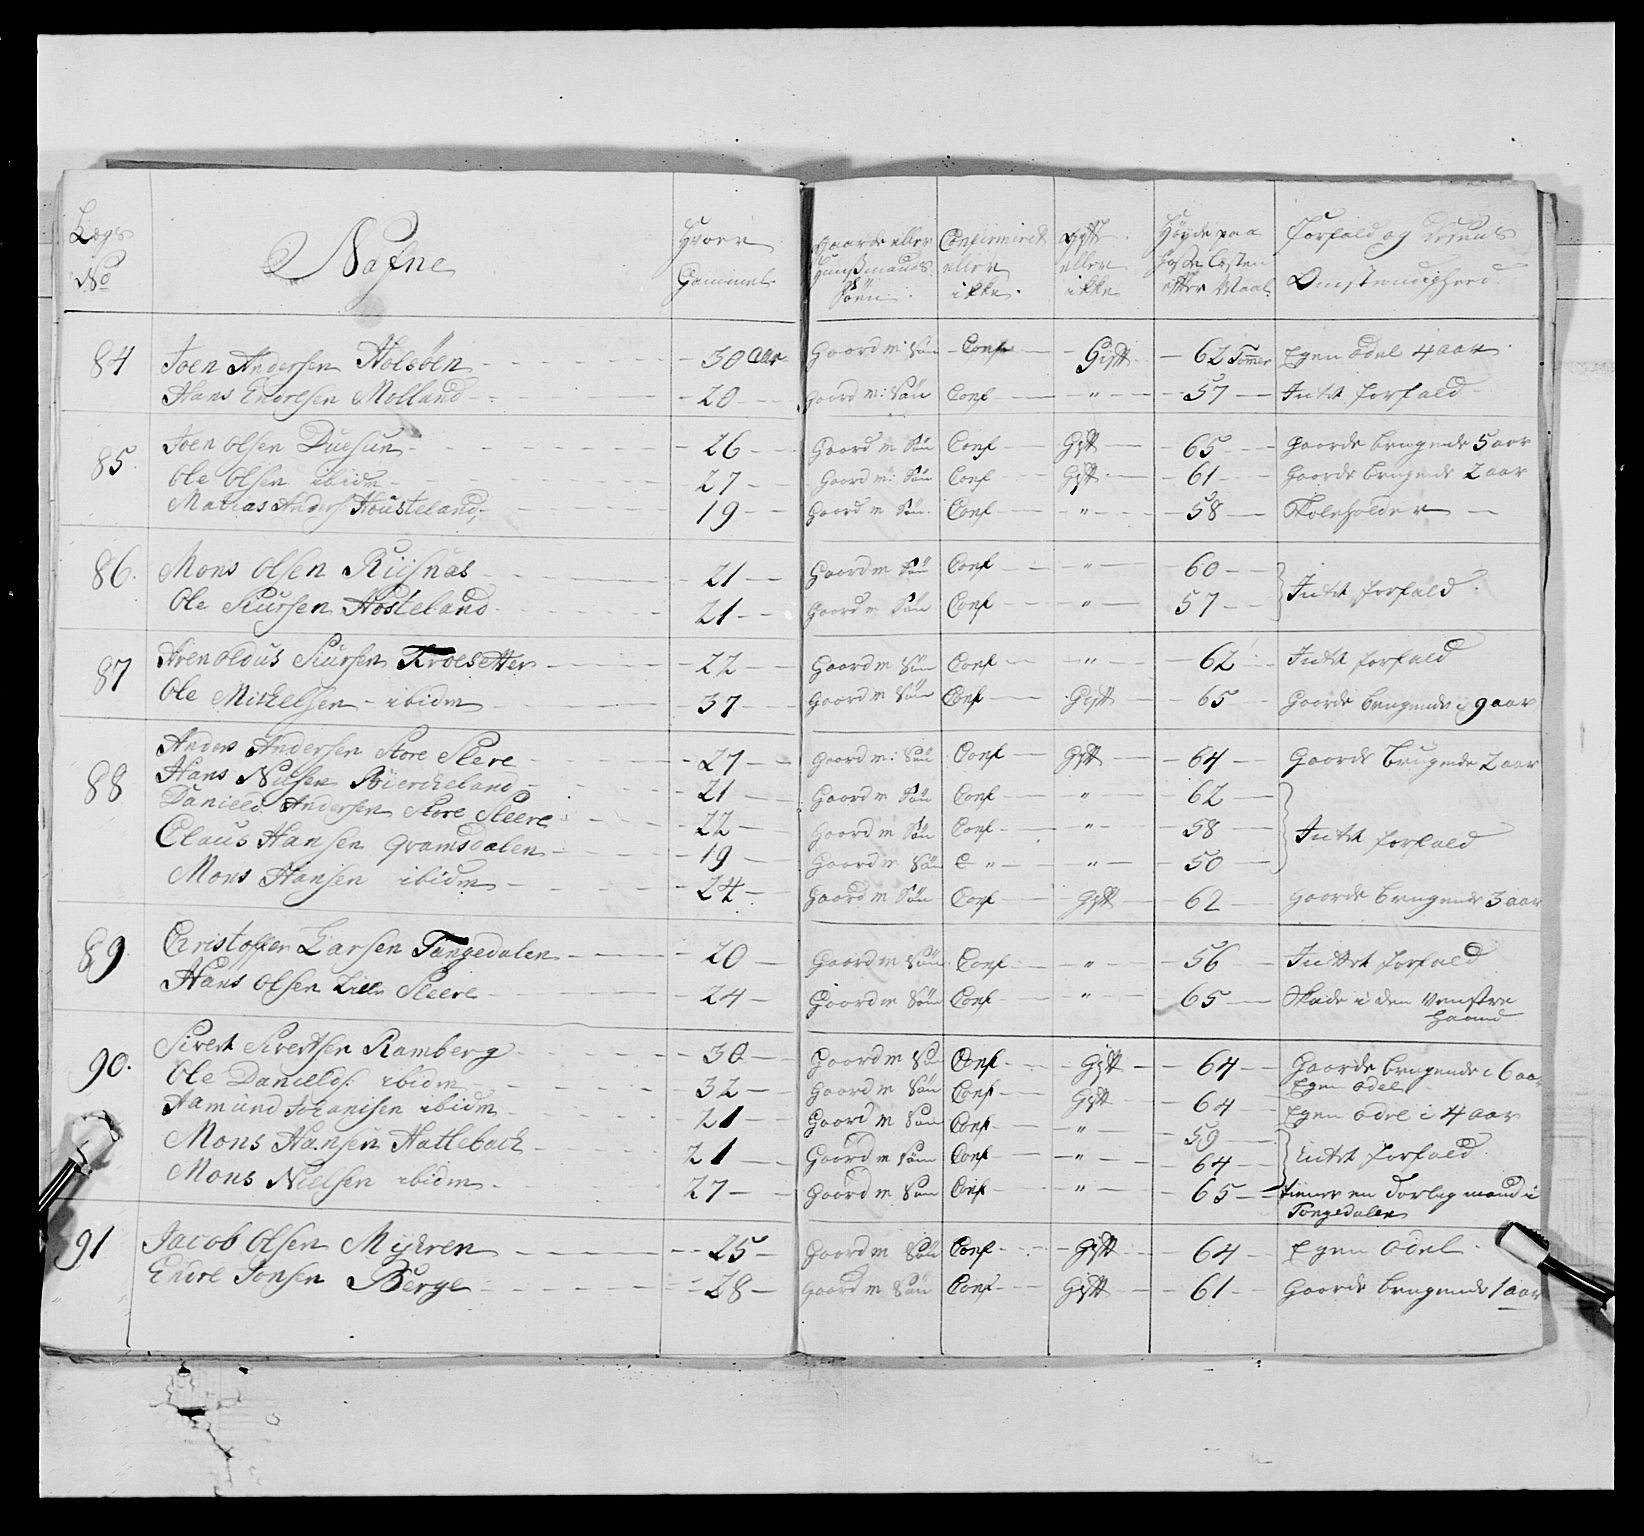 Lægs No | Nafne | Hvoer Gammel | Gaarde eller Huusmands Söen | Confirmiret eller ikke | Gift eller ikke | Höyde paa Hosse Lesten efter Maal | Forfald og Omstendighed
84 Joen Andersen Holsöen - 30 Aar Gaord m: Sön - Conf - Gift - 62 Tommer Egen odel 4 aar
Hans Endresen Molland - 20 - Gaord m: Sön Conf - " - 57 - Intet forfald
85 Joen Olsen Duesun - 26 - Gaord m Sön Conf - Gift - 65 - Gaarde brugende 5 aar
Ole Olsen ibidm - 27 - Gaord m: Sön Conf - Gift - 61 - Gaarde brugende 2 aar
Matias Anders Housteland - 19 - Gaord m Sön Conf - " - 58 - Skoleholder
86. Mons Olsen Risnæs - 21 - Gaord m Sön Conf - " - 60 - Intet forfald
Ole Siursen Hosteland - 21 - Gaord m Sön Conf - " - 57 -
87 Arenoldus Siursen Kroesetter - 22 - Gaord m Sön Conf - " - 62 - Intet forfald
Ole Mickelsen - ibidm - 37 - Gaord m Sön Conf - Gift - 65 - Gaarde brugende i 9 aar
88 Anders Andersen Store Slere - 27 - Gaord m: Sön Conf - Gift - 64 - Gaarde brugende 2 aar
Hans Nilsen Birckeland - 21 - Gaord m Sön Conf - " - 62 -
Danield Andersen Store Sleere - 22 - Gaord m Sön Conf - " - 58 - Intet forfald
Claus Hansen Qvamsdalen - 19 - Gaord m Sön C " - " - 50
Mons Hansen ibidm - 24 - Gaord m Sön Conf - Gift - 62 - Gaarde brugende 3 aar
89 Christoffer Larsen Tangedalen - 20 - Gaord m Sön Conf - " - 56 - Inttet forfald
Hans Olsen Lille Sleere - 24 - Gaord m Sön Conf - " - 65 - Skade i den venstre
Haand
90. Sivert Sivertsen Ramberg - 30 - Gaord m Sön Conf - Gift - 64 - Gaarde brugende i 6 aar
Egen odel
Ole Danields: ibidm - 32 - Gaord m Sön Conf - Gift - 64 - Egen odel i 4 aar
Aamund Johanisen ibidm - 21 - Gaord m Sön Conf - " - 59 - Intet forfald
Mons Hansen Hatleback - 21 - Gaord m Sön Conf - " - 64 -
Mons Nielsen ibidm - 27 - Gaord m Sön Conf - " - 65 - tiener en Dorlig mand i
Tongedalen
91 Jacob Olsen Myhren - 25 - Gaord m Sön Conf - Gift - 64 - Egen Odel
Endre Jonsen Berge - 28 - Gaord m Sön Conf - Gift - 61 - Gaarde brugende 1 aar